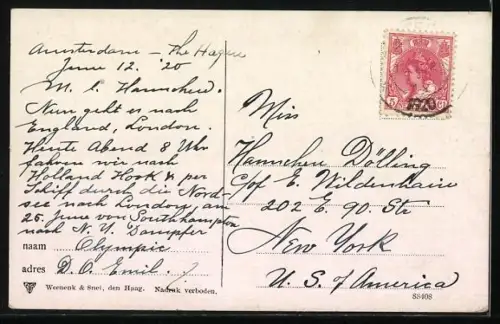 Amsterdam – The Hague
June 12. '20
M. l. Hannchen.
Nun geht es nach
England, London.
Heute Abend 8 Uhr
fahren wir nach
Holland Hook & per
Schiff durch die Nord-
see nach London, am
25. June von Southhampton
nach N. Y. Dampfer
naam Olympic
adres D. O. Emil.
Weenenk & Snel, den Haag. Nadruk verboden.
1920
Miss
Hannchen Dölling
c/of E. Wildenhain
202 E. 90. Str
New York
U. S. of America
88408